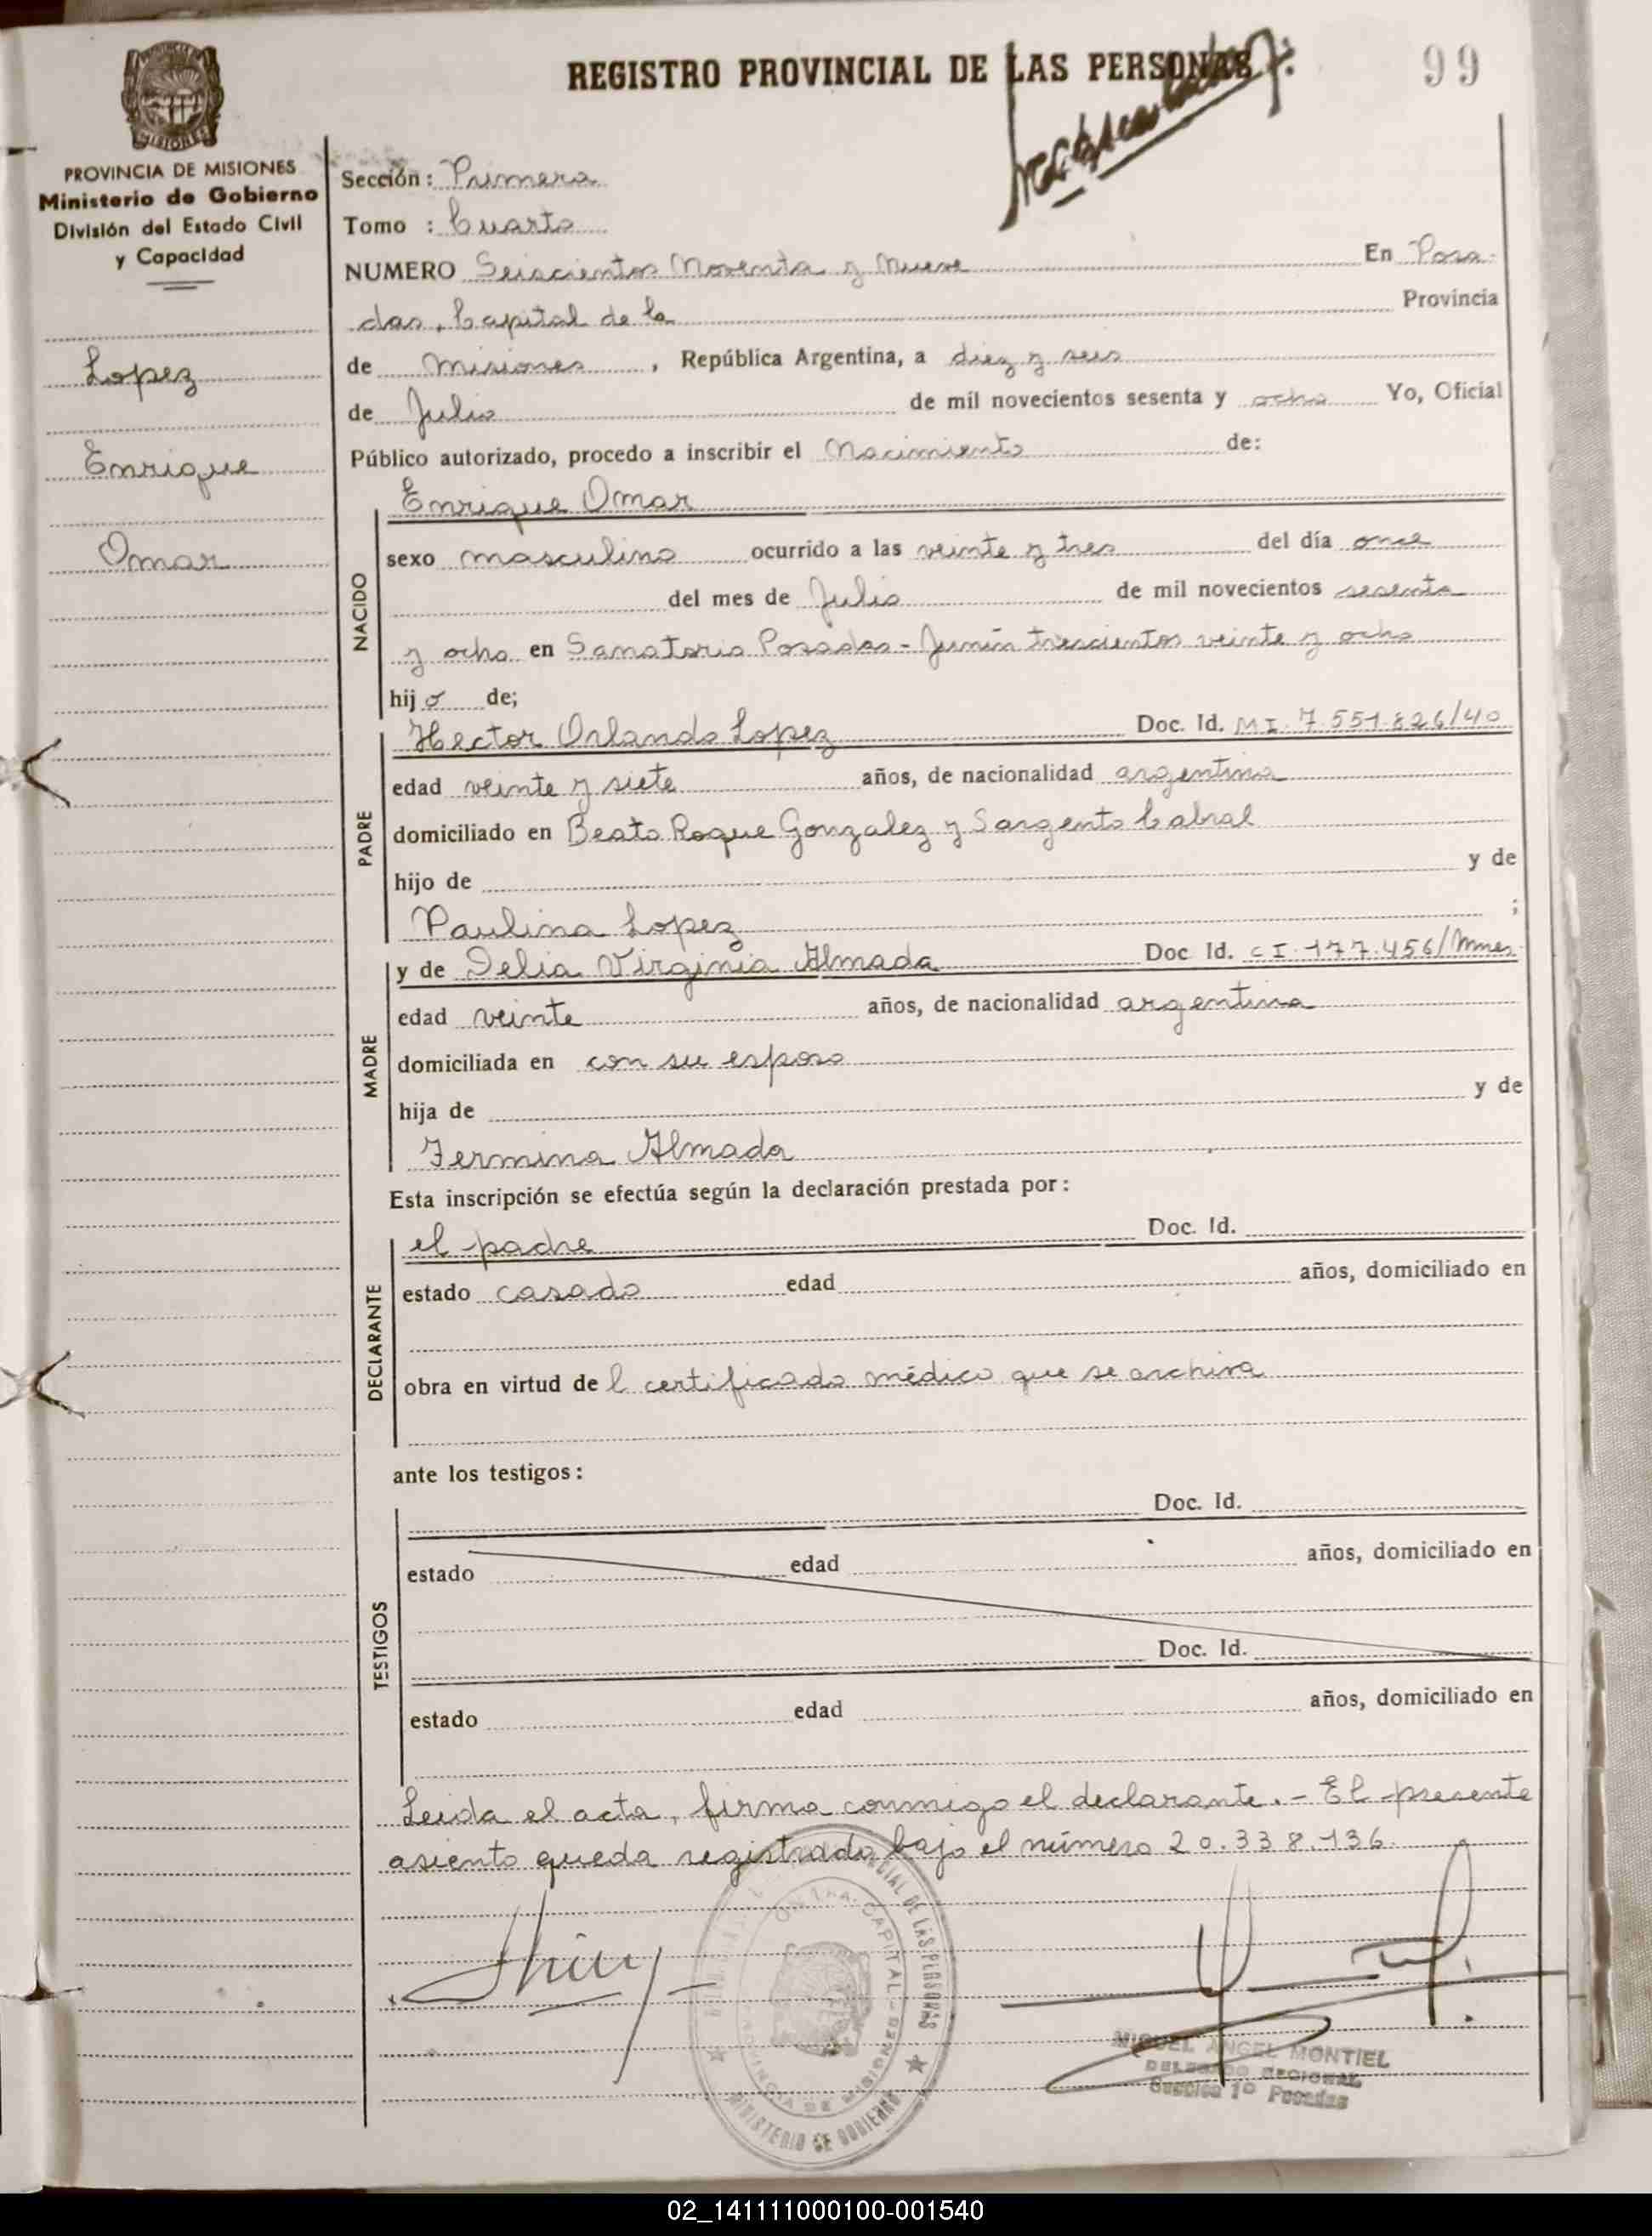 REGISTRO PROVINCIAL DE LAS PERSONAS
99
PROVINCIA DE MISIONES
Ministerio de Gobierno
División del Estado Civil
y Capacidad
Lopez
Enrique
Omar
Sección: Primera
Tomo : Cuarto
NUMERO Seiscientos Noventa y Nueve En Posa-
das, Capital de la Provincia
de Misiones, República Argentina, a diez y seis
de Julio de mil novecientos sesenta y ocho Yo, Oficial
Público autorizado, procedo a inscribir el Nacimiento de:
NACIDO
Enrique Omar
sexo masculino ocurrido a las veinte y tres del día once
del mes de Julio de mil novecientos sesenta
y ocho en Sanatorio Posadas - Junín trescientos veinte y ocho
hijo de;
PADRE
Hector Orlando Lopez Doc. Id. M I. 7.551.826/40
edad veinte y siete años, de nacionalidad argentina
domiciliado en Beato Roque Gonzalez y Sargento Cabral
hijo de y de
Paulina Lopez ;
MADRE
y de Delia Virginia Almada Doc Id. C I. 177.456/Mnes
edad veinte años, de nacionalidad argentina
domiciliada en con su esposo
hija de y de
Fermina Almada
Esta inscripción se efectúa según la declaración prestada por:
DECLARANTE
el padre Doc. Id.
estado casado edad años, domiciliado en
obra en virtud del certificado médico que se archiva
ante los testigos:
TESTIGOS
Doc. Id.
estado edad años, domiciliado en
Doc. Id.
estado edad años, domiciliado en
Leida el acta, firma conmigo el declarante.- El presente
asiento queda registrado bajo el número 20.338.136
CAPITAL - MISIONES
PROVINCIA DE MISIONES
MINISTERIO DE GOBIERNO
MIGUEL ANGEL MONTIEL
DELEGADO REGIONAL
Sección 1º Posadas
02_141111000100-001540